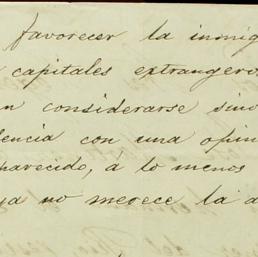 favorecer la inmig
capitales extrangero
n considerarse sino
lencia con una opin
parecido, á lo menos
ya no merece la a